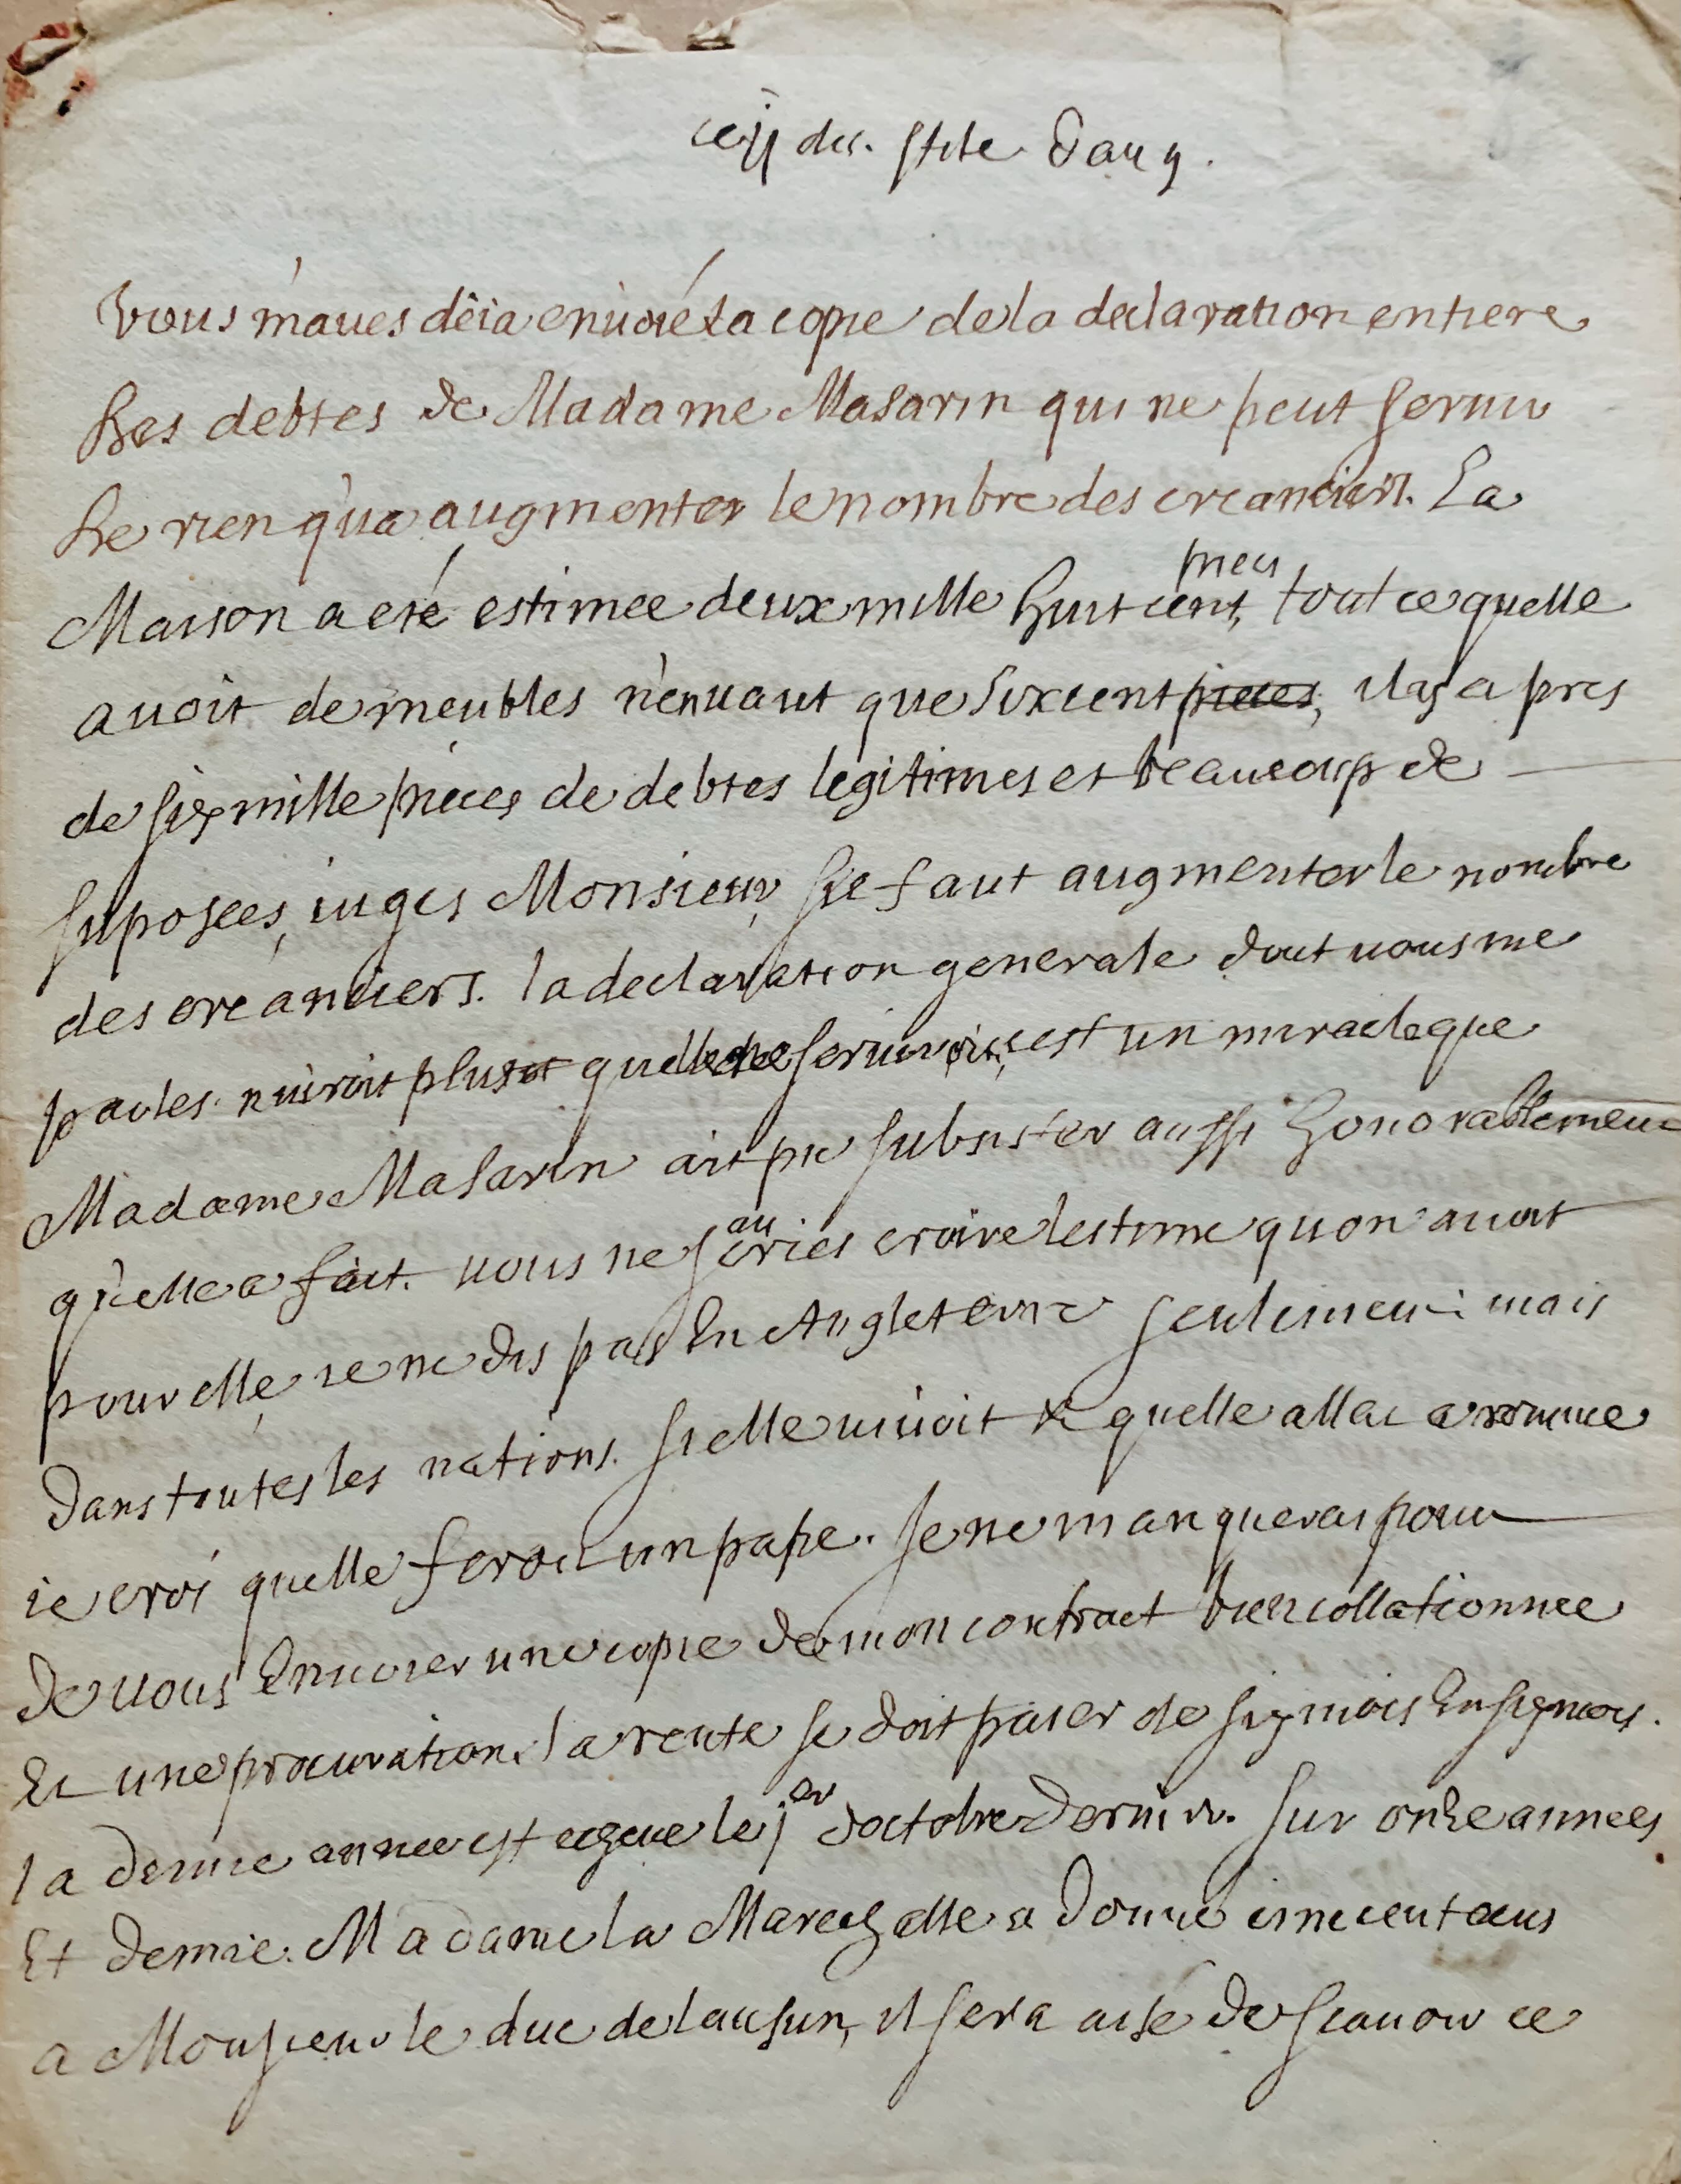 ce ij dec. stile d'ang.
vous m'aues dêia enuoié la copie de la declaration entiere
des debtes de Madame Masarin qui ne peut seruir
de rien qu'a augmenter le nombre des creanciers. La
Maison a eté estimée deux mille huit cent, pieces tout ce quelle
auoit de meubles n'en vaut que six cent pieces, il y a pres
de six mille pieces de debtes legitimes et beaucoup de
suposees, iuges Monsieur, s'il faut augmenter le nombre
des creanciers. la declaration generale dont vous me
parles nuiroit plustot quelle ne seruiroit, c'est un miracle que
Madame Masarin ait pu subsister aussi honorablement
qu'elle a fait. vous ne sauries croire lestime quon auoit
pour elle, ie ne dis pas En Angleterre seulement mais
dans toutes les nations. si elle viuoit & quelle allat a romme
ie croi quelle feroit un pape. Je ne manquerai pour
de vous Enuoier une copie de mon contract bien collationnée
Et une procuration. la rente se doit païer de six mois En six mois.
la demie année est echeue le j er d'octobre dernier. sur onze années
Et demie. Madame la Marechalle a donné cinc cent ecus
a Monsieur le duc de lausun, il sera aisé de scauoir ce